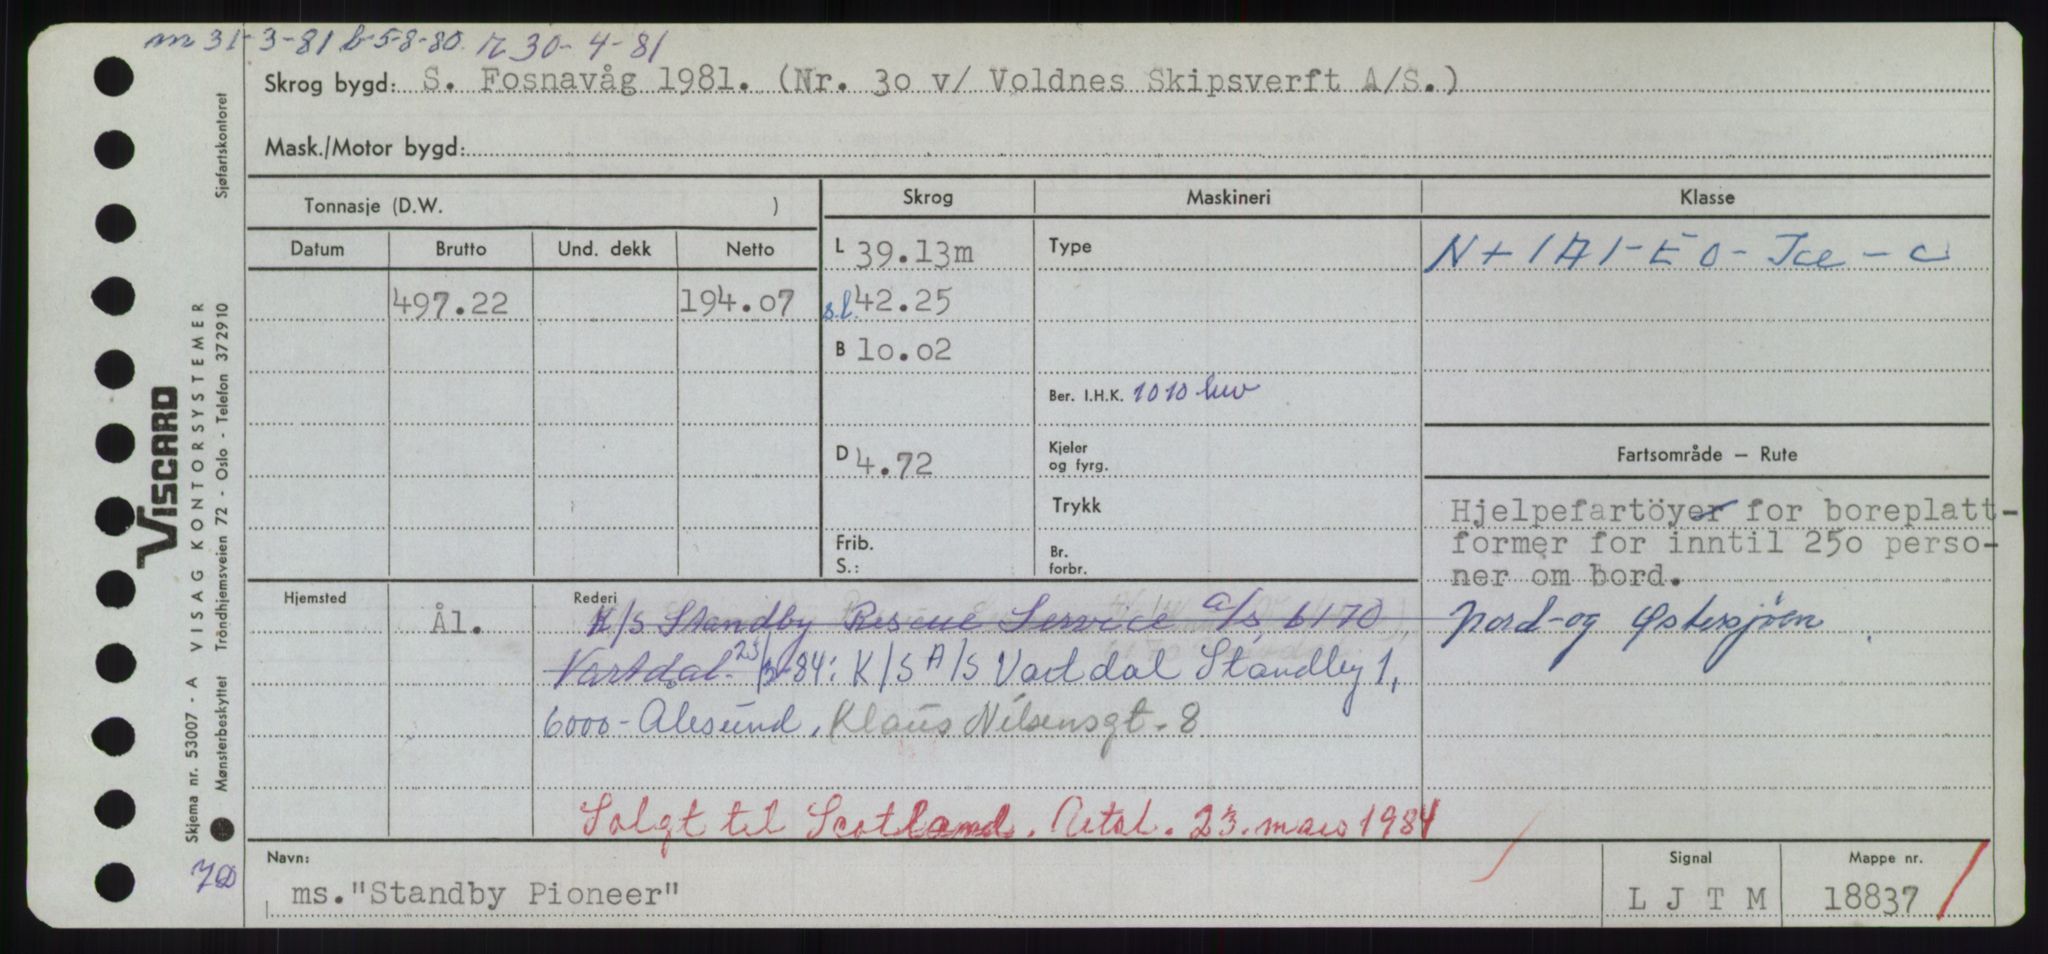 m 31-3-81 b-5-8-80. r 30-4-81
Skrog bygd: S. Fosnavåg 1981. (Nr. 30 v/ Voldnes Skipsverft A/S.)
Mask./Motor bygd:
Tonnasje (D.W. )
Skrog
Maskineri
Klasse
Datum
Brutto
Und. dekk
Netto
L 39.13m
Type
N + 1A1-E0-Ice-C
497.22
194.07
s.l. 42.25
B 10.02
Ber. I.H.K. 1010 kw
D 4.72
Kjeler
og fyrg.
Fartsområde – Rute
Trykk
Hjelpefartöyer for boreplatt-
former for inntil 250 perso-
ner om bord.
Frib.
S.:
Br.
forbr.
Hjemsted
Rederi
Ål.
K/S Standby Rescue Service a/s 6170
Nord- og Østersjøen
Vartdal. 23/3-84: K/S A/S Vartdal Standby 1,
6000-Ålesund, Klaus Nilsensgt. 8
Solgt til Scotland. Utsl. 23. mars 1984
Navn:
ms."Standby Pioneer"
Signal
L J T M
Mappe nr.
18837
Sjøfartskontoret
VISCARD
VISAG KONTORSYSTEMER
Trondhjemsveien 72 - Oslo - Telefon 372910
Skjema nr. 53007 - A
Mønsterbeskyttet